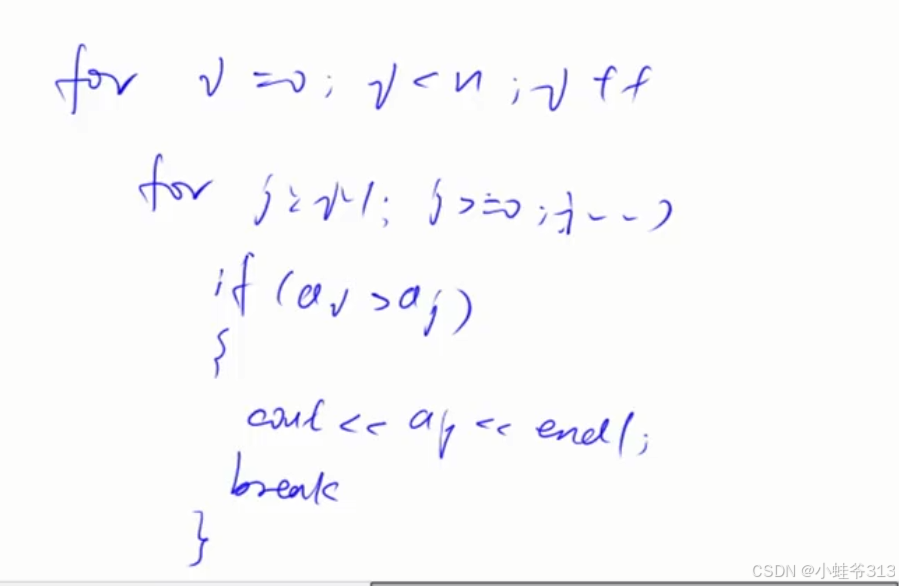 for i=0; i<n; i++
for j=i-1; j>=0; j--)
if (ai>aj)
{
cout << aj << endl;
break
}
CSDN @小蛙爷313